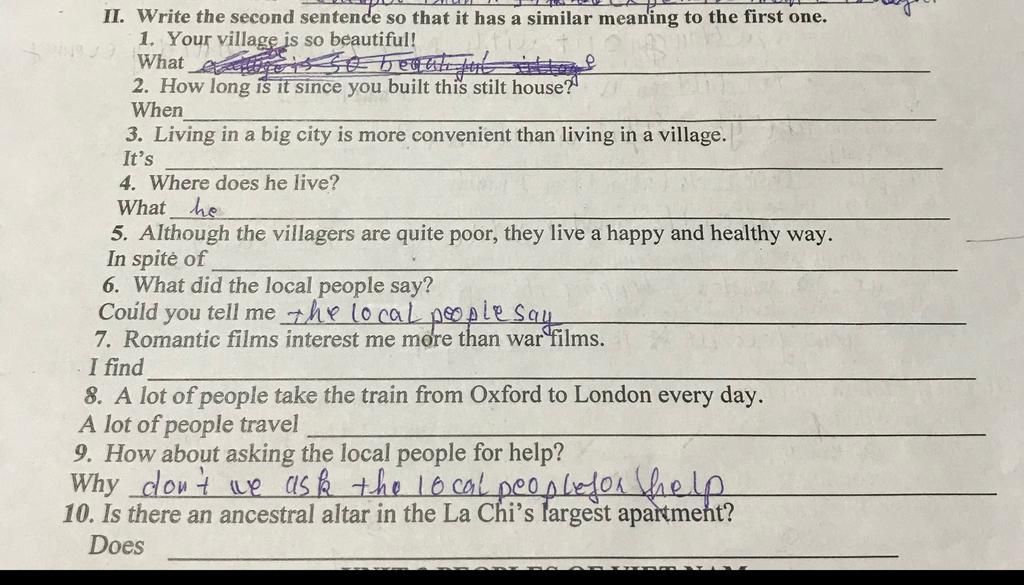 II. Write the second sentence so that it has a similar meaning to the first one.
1. Your village is so beautiful!
What is so beautiful village
2. How long is it since you built this stilt house?
When
3. Living in a big city is more convenient than living in a village.
It's
4. Where does he live?
What he
5. Although the villagers are quite poor, they live a happy and healthy way.
In spite of
6. What did the local people say?
Could you tell me the local people say
7. Romantic films interest me more than war films.
I find
8. A lot of people take the train from Oxford to London every day.
A lot of people travel
9. How about asking the local people for help?
Why don't we ask the local people for help
10. Is there an ancestral altar in the La Chi's largest apartment?
Does